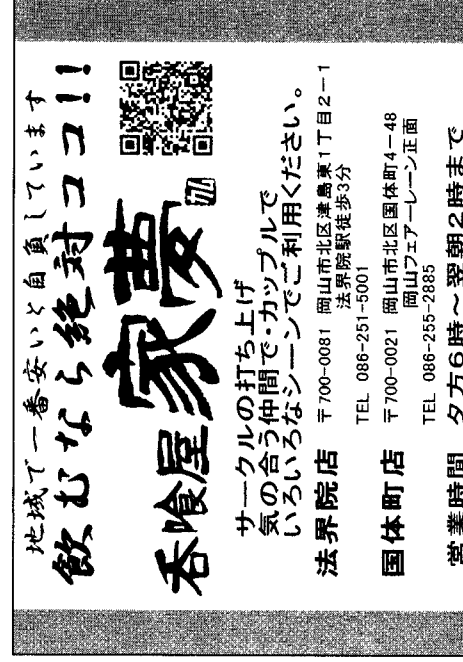 地域で一番安いと自負しています
飲むなら絶対ココ!!
呑喰屋 家夢
サークルの打ち上げ
気の合う仲間で・カップルで
いろいろなシーンでご利用ください。
法界院店 〒700-0081 岡山市北区津島東1丁目2-1
法界院駅徒歩3分
TEL 086-251-5001
国体町店 〒700-0021 岡山市北区国体町4-48
岡山フェアーレーン正面
TEL 086-255-2885
営業時間 夕方6時～翌朝2時まで